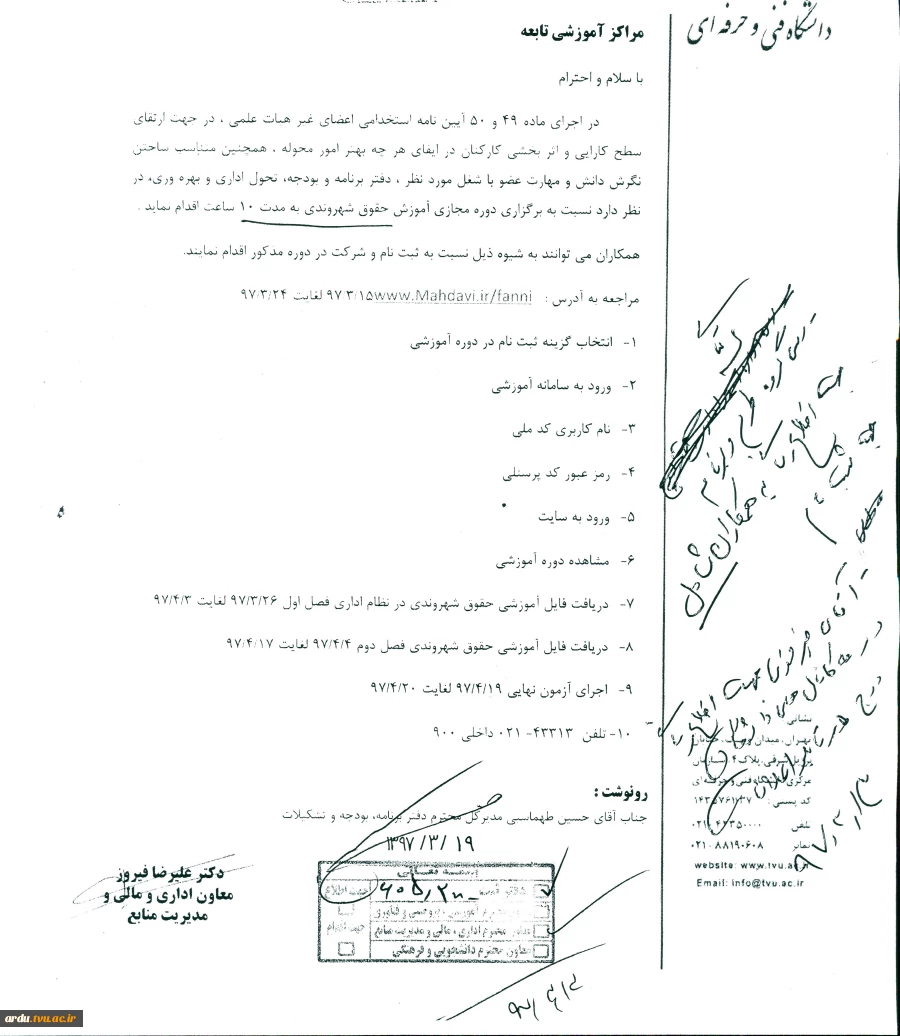 دانشگاه فنی و حرفه ای
مراکز آموزشی تابعه
با سلام و احترام
در اجرای ماده ۴۹ و ۵۰ آیین نامه استخدامی اعضای غیر هیات علمی ، در جهت ارتقای
سطح کارایی و اثر بخشی کارکنان در ایفای هر چه بهتر امور محوله ، همچنین متناسب ساختن
نگرش دانش و مهارت عضو با شغل مورد نظر ، دفتر برنامه و بودجه، تحول اداری و بهره وری، در
نظر دارد نسبت به برگزاری دوره مجازی آموزش حقوق شهروندی به مدت ۱۰ ساعت اقدام نماید .
همکاران می توانند به شیوه ذیل نسبت به ثبت نام و شرکت در دوره مذکور اقدام نمایند.
مراجعه به آدرس : www.Mahdavi.ir/fanni ۹۷/۳/۱۵ لغایت ۹۷/۳/۲۴
۱- انتخاب گزینه ثبت نام در دوره آموزشی
۲- ورود به سامانه آموزشی
۳- نام کاربری کد ملی
۴- رمز عبور کد پرسنلی
۵- ورود به سایت
۶- مشاهده دوره آموزشی
۷- دریافت فایل آموزشی حقوق شهروندی در نظام اداری فصل اول ۹۷/۳/۲۶ لغایت ۹۷/۴/۳
۸- دریافت فایل آموزشی حقوق شهروندی فصل دوم ۹۷/۴/۴ لغایت ۹۷/۴/۱۷
۹- اجرای آزمون نهایی ۹۷/۴/۱۹ لغایت ۹۷/۴/۲۰
۱۰- تلفن ۴۳۳۱۳- ۰۲۱ داخلی ۹۰۰
رونوشت :
جناب آقای حسین طهماسبی مدیرکل محترم دفتر برنامه، بودجه و تشکیلات
۱۳۹۷/۳/۱۹
دکتر علیرضا فیروز
معاون اداری و مالی و
مدیریت منابع
بسمه تعالی
جهت اطلاع
جهت اقدام
معاون محترم اداری ، مالی و مدیریت منابع
معاون محترم دانشجویی و فرهنگی
نشانی
کد پستی : ۱۴۳۵۷۶۱۱۳۷
تلفن
نمابر ۰۲۱-۸۸۱۹۰۶۰۸
website: www.tvu.ac.ir
Email: info@tvu.ac.ir
ardu.tvu.ac.ir